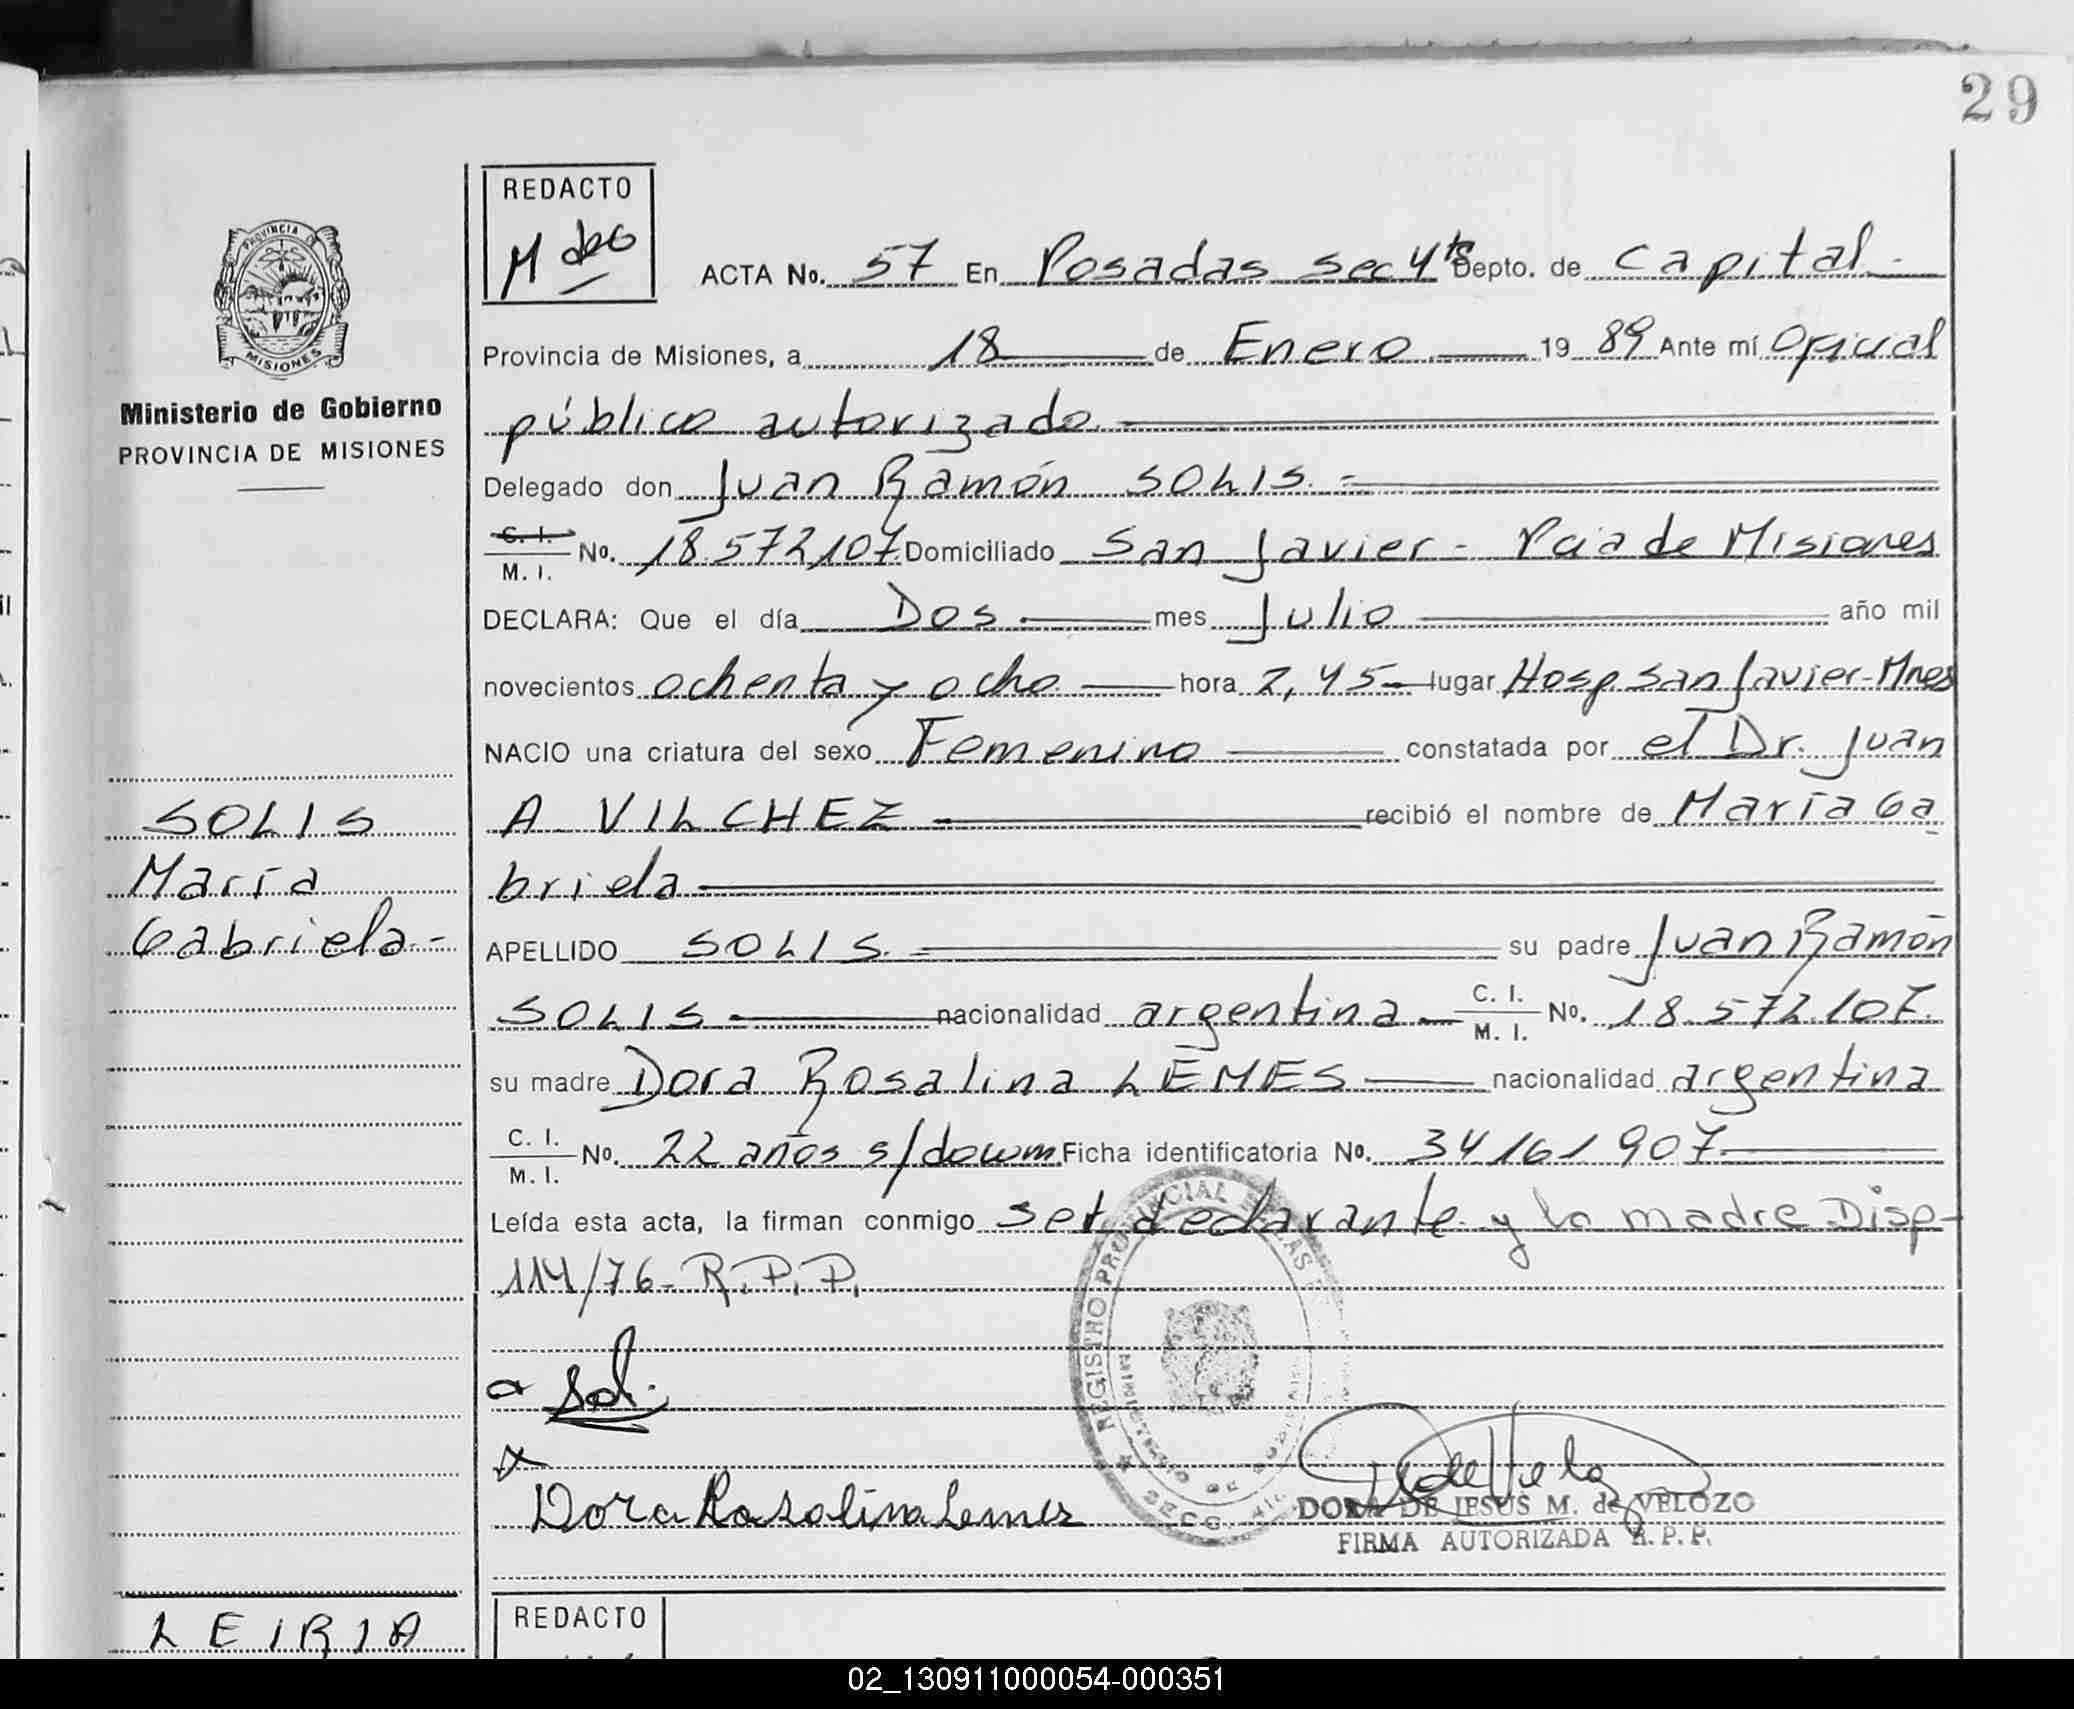 29
REDACTO
ACTA No. 57 En Posadas sec 4ta Depto. de Capital.-
PROVINCIA DE
MISIONES
Provincia de Misiones, a 18 de Enero 19 89 Ante mí Oficial
Ministerio de Gobierno
PROVINCIA DE MISIONES
público autorizado.
Delegado don Juan Ramón SOLIS.-
C. I.
M. I. No. 18.572.107 Domiciliado San Javier - Pcia de Misiones
DECLARA: Que el día Dos mes Julio año mil
novecientos ochenta y ocho hora 2,45 lugar Hosp. San Javier-Mnes
NACIO una criatura del sexo Femenino constatada por el Dr. Juan
A. VILCHEZ recibió el nombre de María Ga
briela
SOLIS
María
Gabriela.-
APELLIDO SOLIS.- su padre Juan Ramón
SOLIS nacionalidad argentina C. I.
M. I. No. 18.572.107.
su madre Dora Rosalina LEMES nacionalidad argentina
C. I.
M. I. No. 22 años s/docum Ficha identificatoria No. 34161907
Leída esta acta, la firman conmigo set. declarante y la madre Disp-
114/76- R.P.P.
REGISTRO PROVINCIAL DE LAS
Sol.
Dora Rosalina Lemes
DORA DE JESUS M. de VELOZO
FIRMA AUTORIZADA R.P.P.
REDACTO
LEIRIA
02_130911000054-000351